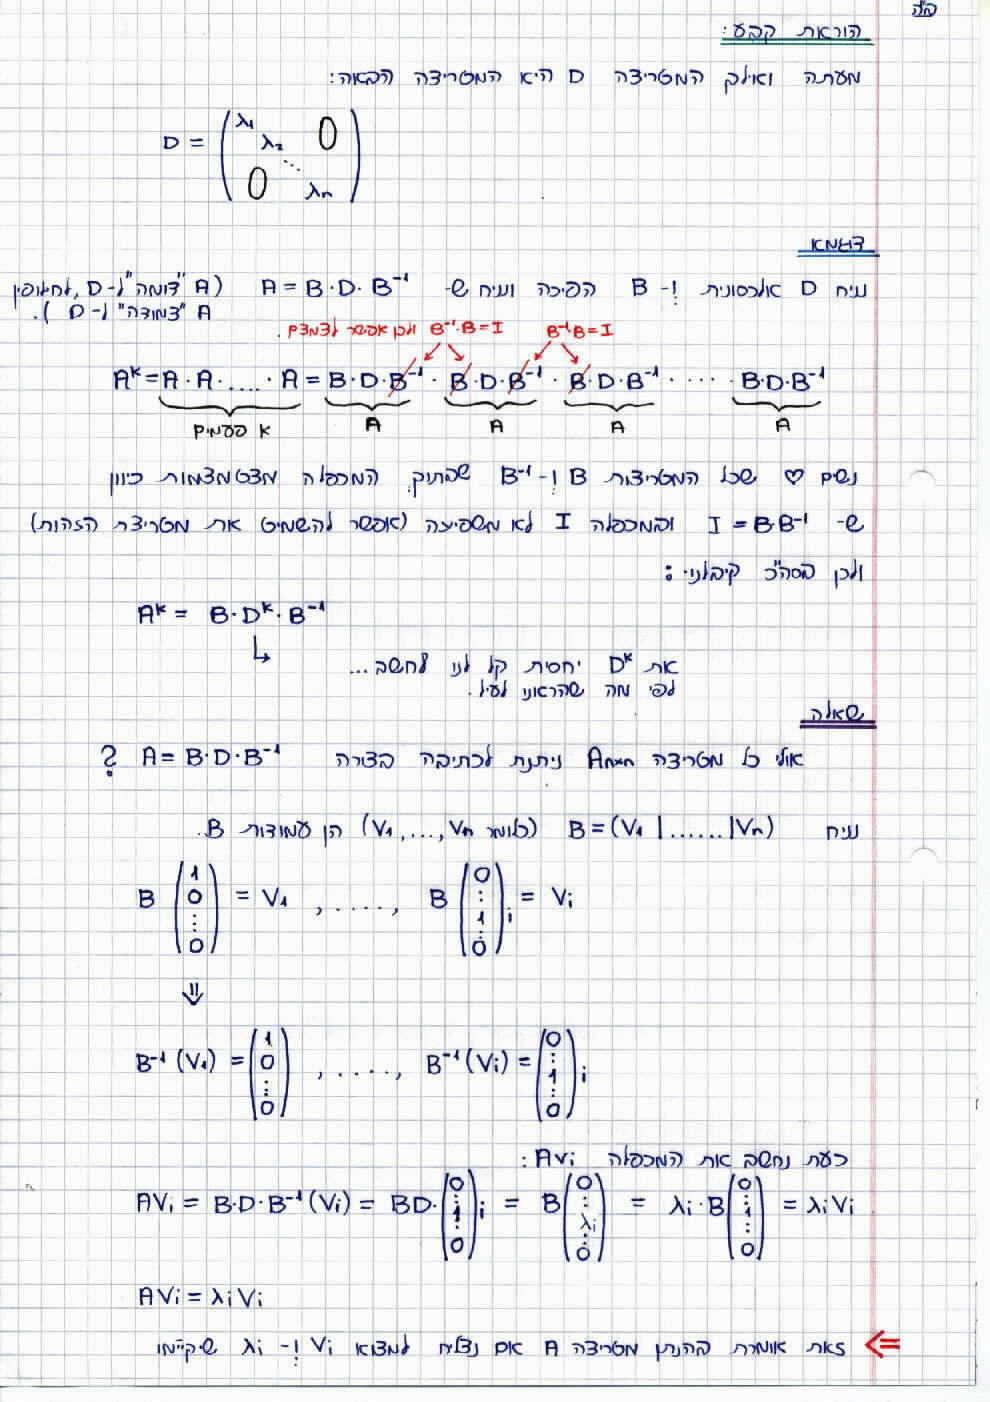 בה
הוראת קבע:
מעתה ואילך המטריצה D היא המטריצה הבאה:
D = (λ1 λ2 ⋱ λn 0 0)
דוגמא
נניח D אלכסונית ו- B הפיכה ונניח ש- A = B·D·B⁻¹ (A "דומה" ל-D, לחילופין
A "צמודה" ל-D).
B⁻¹·B=I ולכן אפשר לצמצם. B⁻¹B=I
A^k = A·A·....·A = B·D·B⁻¹ · B·D·B⁻¹ · B·D·B⁻¹ · ···· · B·D·B⁻¹
k פעמים A A A A
נשים ♡ שכל המטריצות B ו- B⁻¹ שבתוך המכפלה מצטמצמות כיוון
ש- I = B·B⁻¹ ובמכפלה I לא משפיעה (אפשר להשמיט את מטריצת הזהות)
ולכן בסה"כ קיבלנו:
A^k = B·D^k·B⁻¹
↳ את D^k יחסית קל לנו לחשב...
לפי מה שהראנו לעיל.
שאלה
אולי כל מטריצה Anxn ניתנת לכתיבה בצורה A = B·D·B⁻¹ ?
נניח B = (V1 |......|Vn) (כלומר V1,...,Vn) הן עמודות B.
B (1 0 ⋮ 0) = V1 , ...., B (0 ⋮ 1 ⋮ 0)i = Vi
⇓
B⁻¹(V1) = (1 0 ⋮ 0) , ...., B⁻¹(Vi) = (0 ⋮ 1 ⋮ 0)i
כעת נחשב את המכפלה AVi:
AVi = B·D·B⁻¹(Vi) = BD·(0 ⋮ 1 ⋮ 0)i = B(0 ⋮ λi ⋮ 0) = λi·B(0 ⋮ 1 ⋮ 0) = λiVi
AVi = λiVi
⇐ זאת אומרת בהנתן מטריצה A אם נצליח למצוא Vi ו- λi שיקיימו